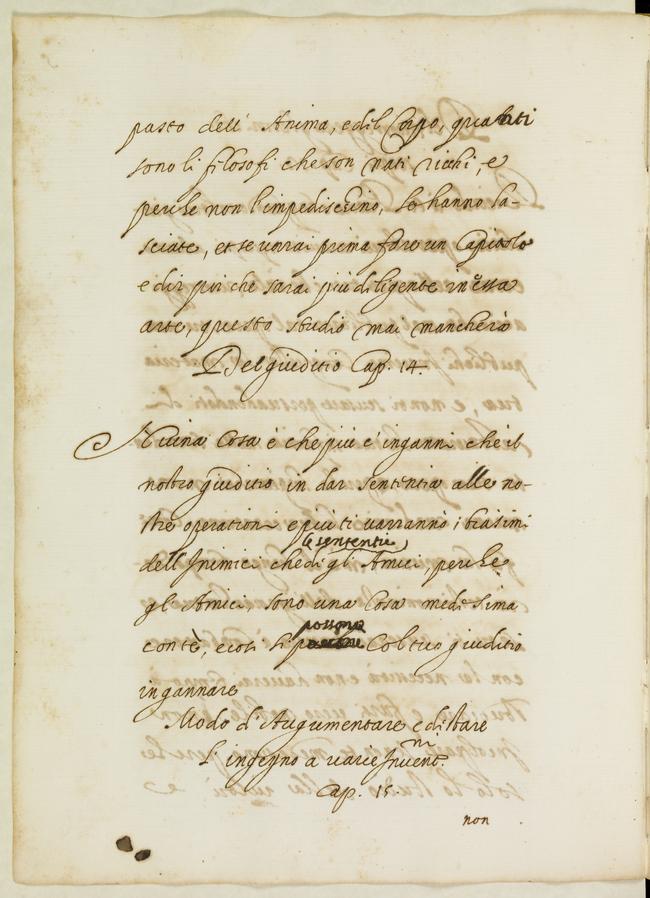 pasto dell' Anima, e dil Corpo, quanti
sono li filosofi che son nati ricchi, e
perche non l'impediscino, le hanno la-
sciate, et se vorrai prima fare un Capitolo
e dir poi che sarai piu diligente in essa
arte, questo studio mai mancherà
Del giuditio Cap. 14.
Niuna Cosa è che piu c'inganni che il
nostro giuditio in dar sententia alle no-
stre operationi e piu ti varranno i biasimi
dell'Inimici che di gl'Amici, perche
le sententie
gl'Amici, sono una Cosa medesima
con tè, e così ti possono Col tuo giuditio
ingannare
Modo d'Augumentare e distare
L'ingegno a varie Invent.ni
Cap. 15.
non